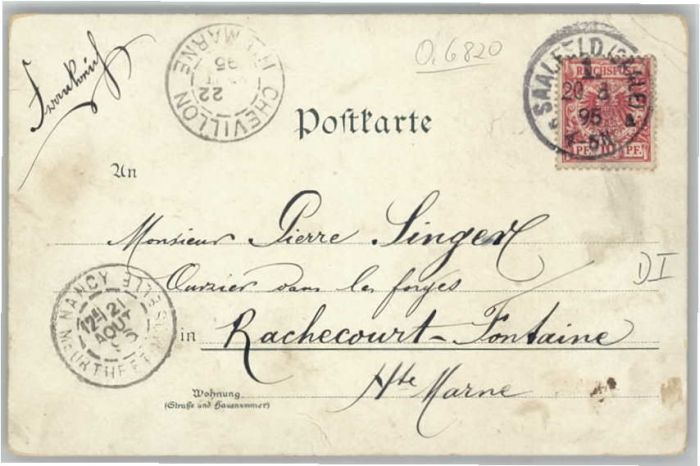 Frankreich
O.6820
CHEVILLON
HTE MARNE
22
95
SAALFELD (SAALE)
1
20 8
95
REICHSPOST
10 PFENNIG 10 PF.
Postkarte
An
Monsieur Pierre Singer
Ouvrier dans les forges
DI
NANCY
MEURTHE ET MOSELLE
21
AOUT
in Rachecourt-Fontaine
Hte Marne
Wohnung
(Straße und Hausnummer)